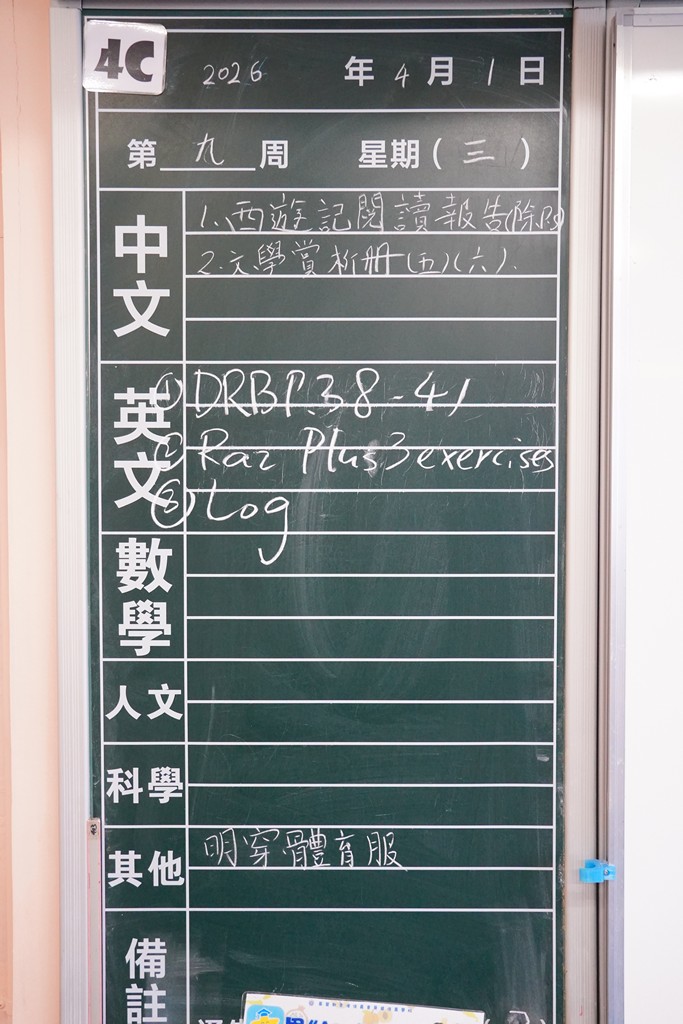 4C
2026 年 4 月 1 日
第 九 周 星期 ( 三 )
中文
1. 西遊記閱讀報告(除
2. 文學賞析冊(五)(六).
英文
① DRB P.38-41
② Raz Plus 3 exercises
③ Log
數學
人文
科學
其他
明穿體育服
備註